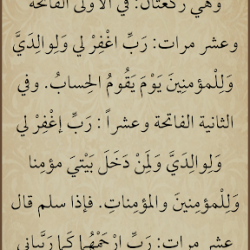 وهي ركعتان: في الأولى الفاتحة
وعشر مرات: رَبِّ اغْفِرْ لي وَلِوالِدَيَّ
وَلِلْمؤمِنِينَ يَوْمَ يَقُومُ الحِسابُ. وفي
الثانية الفاتحة وعشراً : رَبِّ إغْفْرْ لي
وَلِوالِدَيَّ وَلِمَنْ دَخَلَ بَيْتِيَ مؤمِنا
وَلِلْمؤمِنِينَ والمؤمِناتِ. فإذا سلم قال
عشر مرات: رَبِّ ارْحَمْهُما كَما رَبَّياني